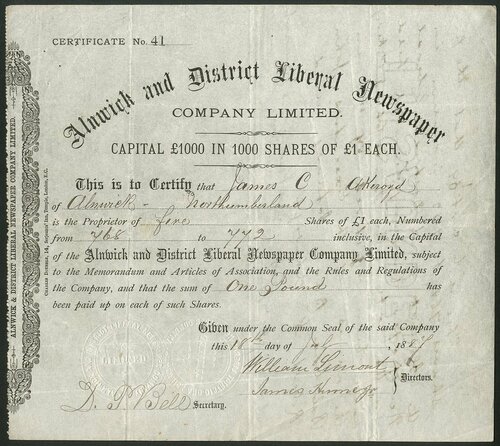 CERTIFICATE No. 41
Alnwick and District Liberal Newspaper
COMPANY LIMITED.
CAPITAL £1000 IN 1000 SHARES OF £1 EACH.
This is to Certify that James C Akeroyd
of Alnwick - Northumberland
is the Proprietor of five Shares of £1 each, Numbered
from 768 to 772 inclusive, in the Capital
of the Alnwick and District Liberal Newspaper Company Limited, subject
to the Memorandum and Articles of Association, and the Rules and Regulations of
the Company, and that the sum of One Pound has
been paid up on each of such Shares.
Given under the Common Seal of the said Company
this 18th day of July 1887
William
James
Directors.
D. P. Bell Secretary.
ALNWICK & DISTRICT LIBERAL NEWSPAPER COMPANY LIMITED.